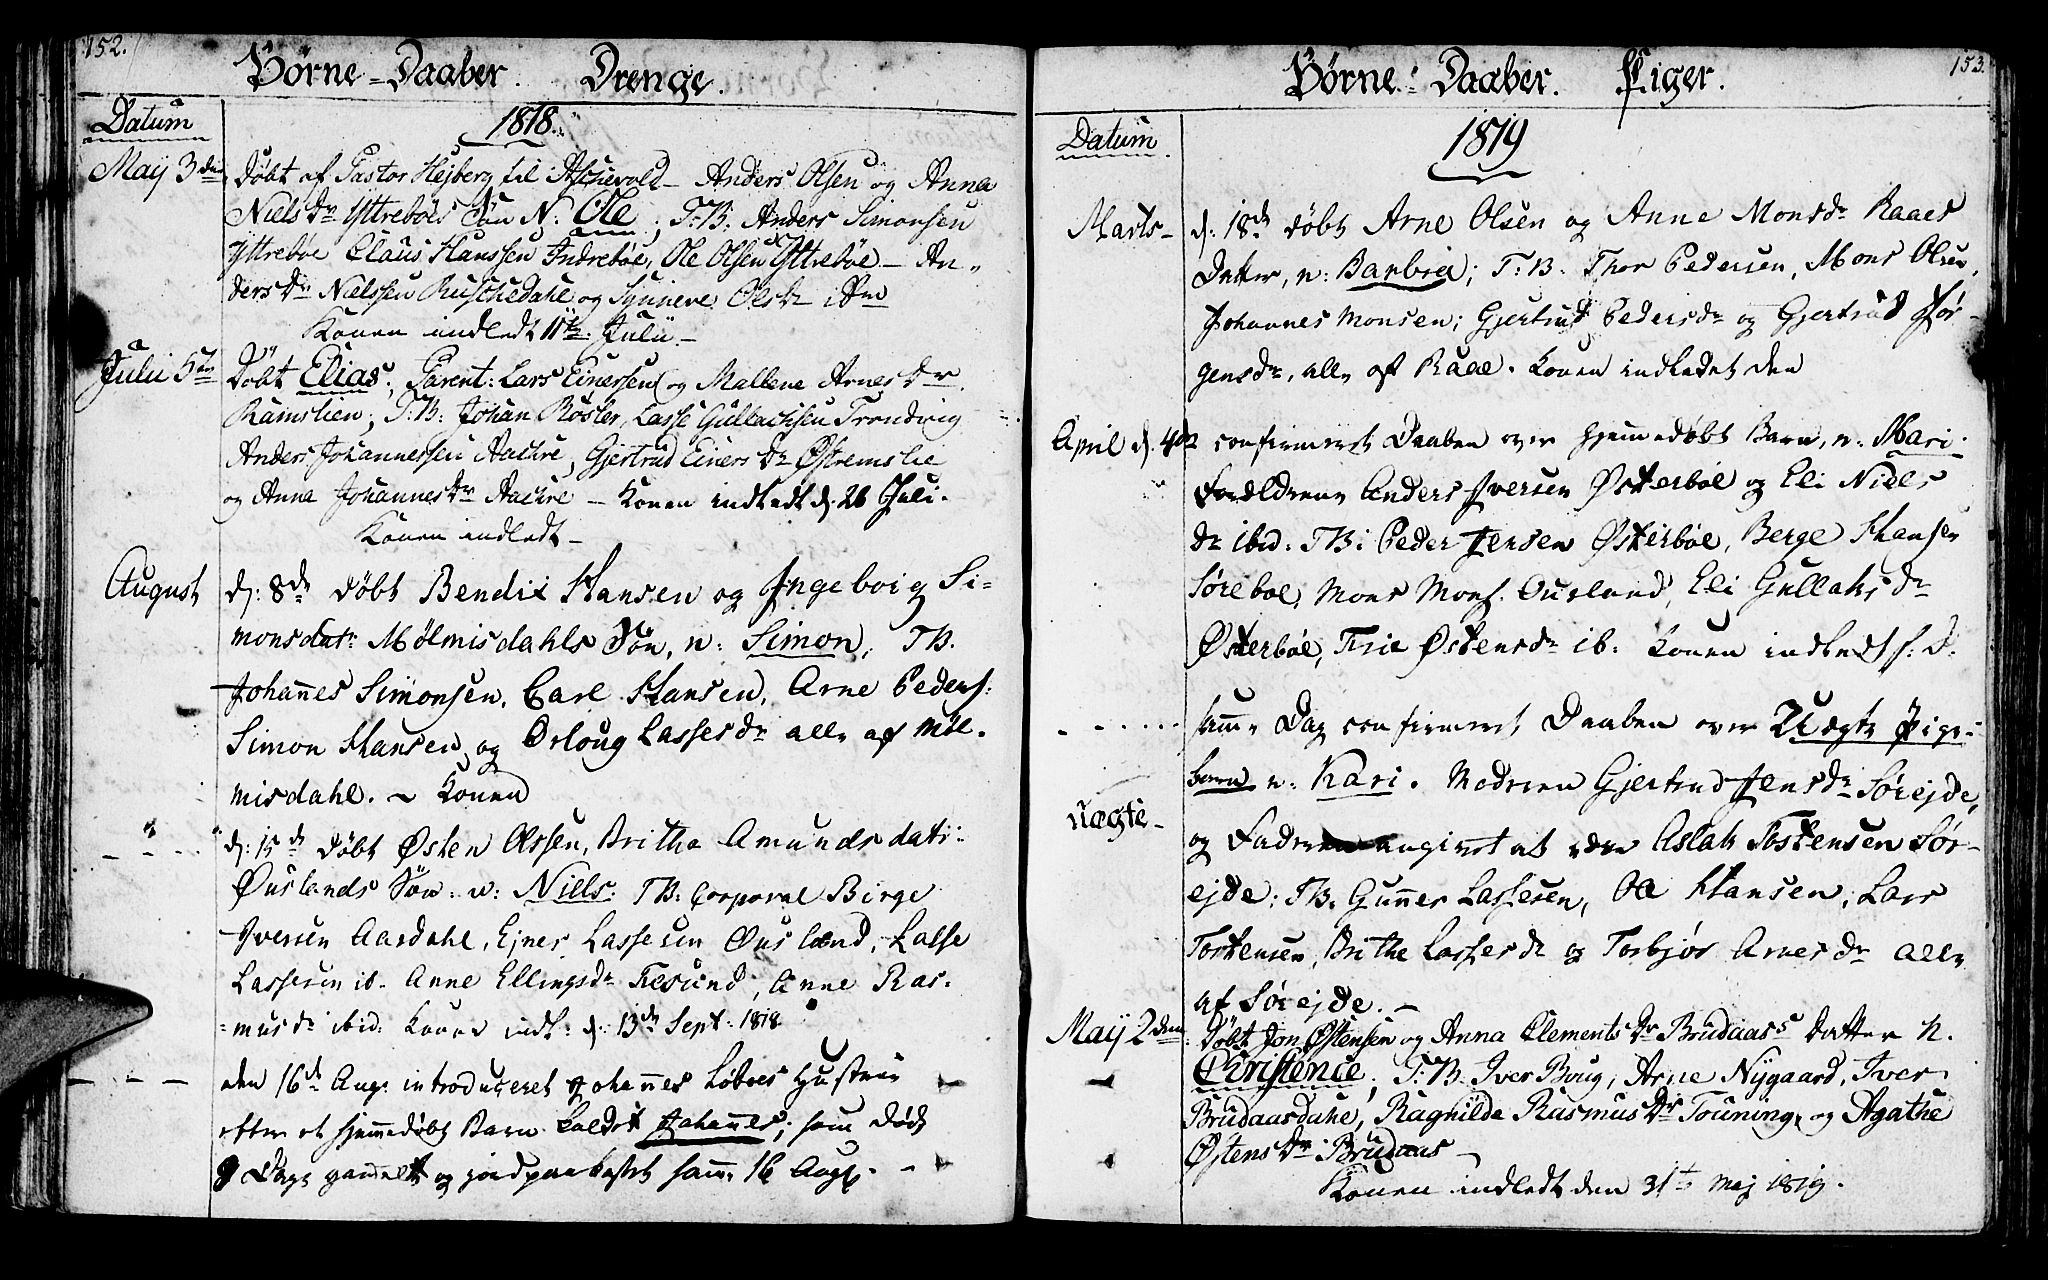 152.
Børne-Daaber. Drenge.
Datum
1818.
May 3den
Døbt af Pastor Hejberg til Aschevold - Anders Olsen og Anna
Niels Dr Yttrebøes Søn N: Ole; T:B: Anders Simonsen
Yttrebøe Claus Hanssen Indrebøe, Ole Olsen Yttrebøe - An-
ders Dr Nielssen Ruschedahl og Synneve Ols Dr ibm
Konen indledt 11te Julii -
Julii 5te
Døbt Elias; Parent: Lars Einersen og Mallene Arnes Dr
Ramslien; T:B: Johan Røsler, Lasse Gullachsen Trondvig
Anders Johannessen Aachre, Gjertrud Einers Dr Østremslie
og Anna Johannes Dr Aachre - Konen indledt d. 26 Juli.
Konen indledt -
August
d: 8de døbt Bendix Hansen og Ingeborg Si-
monsdatr Mølmisdahls Søn, n: Simon, TB.
Johannes Simonsen, Carl Hansen, Arne Peders:
Simon Hansen og Orloug Lassesdr alle af Møl-
misdahl. - Konen
d: 15de døbt Østen Olssen, Britha Amundsdatr:
Øuslands Søn: n: Niels: TB: Corporal Birge
Iversen Aardahl, Ejner Lassesen Øusland, Lasse
Lassesen ib. Anne Ellingsdr Tresund, Anne Ras-
musdr ibid: Konen indl: d: 13de Sept: 1818
den 16de Aug: introduceret Johannes Løtvets Hustrue
efter et hjemmedøbt Barn kaldet Johannes; som døde
8 Dage gammelt og jordpaakastet samme 16 Aug. -
153.
Børne-Daaber. Piger.
Datum.
1819
Marts -
d: 18de døbt Arne Olsen og Anne Monsdr Raaes
Datter, n: Barbra; T:B: Thor Pedersen, Mons Olsen,
Johannes Monsen; Gjertrud Pedersdr og Gjertrud Jør-
gensdr, alle af Raae. Konen indledet den
April d. 4de
confirmeret Daaben over hjemmedøbt Barn, n: Mari.
Forældrene Anders Iversen Østerbøe og Eli Niels
dr ibid: TB: Peder Jensen Østerbøe, Berge Hansen
Sørebøe, Mons Mons. Ousland, Eli Gullaksdr
Østerbøe, Tirie Østensdr ib. Konen indledt s. D.
samme Dag confirmeret Daaben over Uægte Pige-
barn n: Kari. Moderen Gjertrud Jensdr Sørejde,
uægte -
og Faderen angivet at være Aslak Tostensen Sør-
ejde: TB. Gunner Lassesen, Ole Hansen, Lars
Torstensen, Brithe Lassesdr og Torbjør Arnesdr alle
af Sørejde. -
May 2den
Døbt Jon Østensen og Anna Clements Dr Brudaass datter N.
Christence; T:B. Iver Boug, Arne Nygaard, Iver
Brudaasdahl, Ragnilde Rasmus Dr Touning, og Agathe
Østens Dr Brudaas -
Konen indledt den 31te Maj 1819.